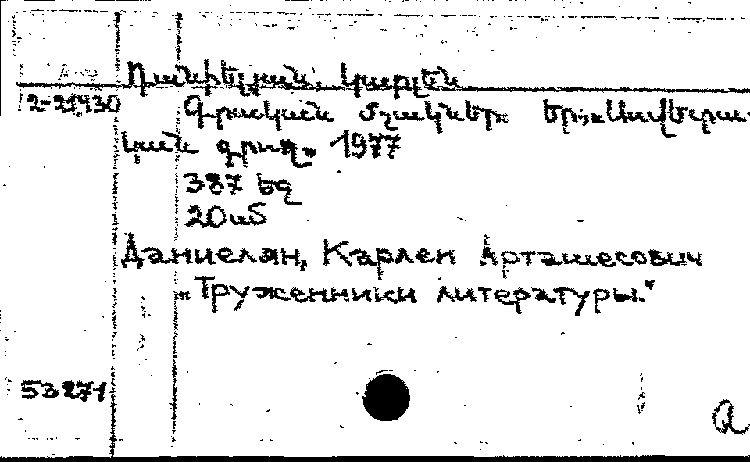 Դանիելյան, Կարլեն
2-21430 Գրական մշակներ: Եր.,
կան գրող" 1977
387 էջ
20սմ
Даниелян, Карлен Арташесович
„Труженники литературы."
53271